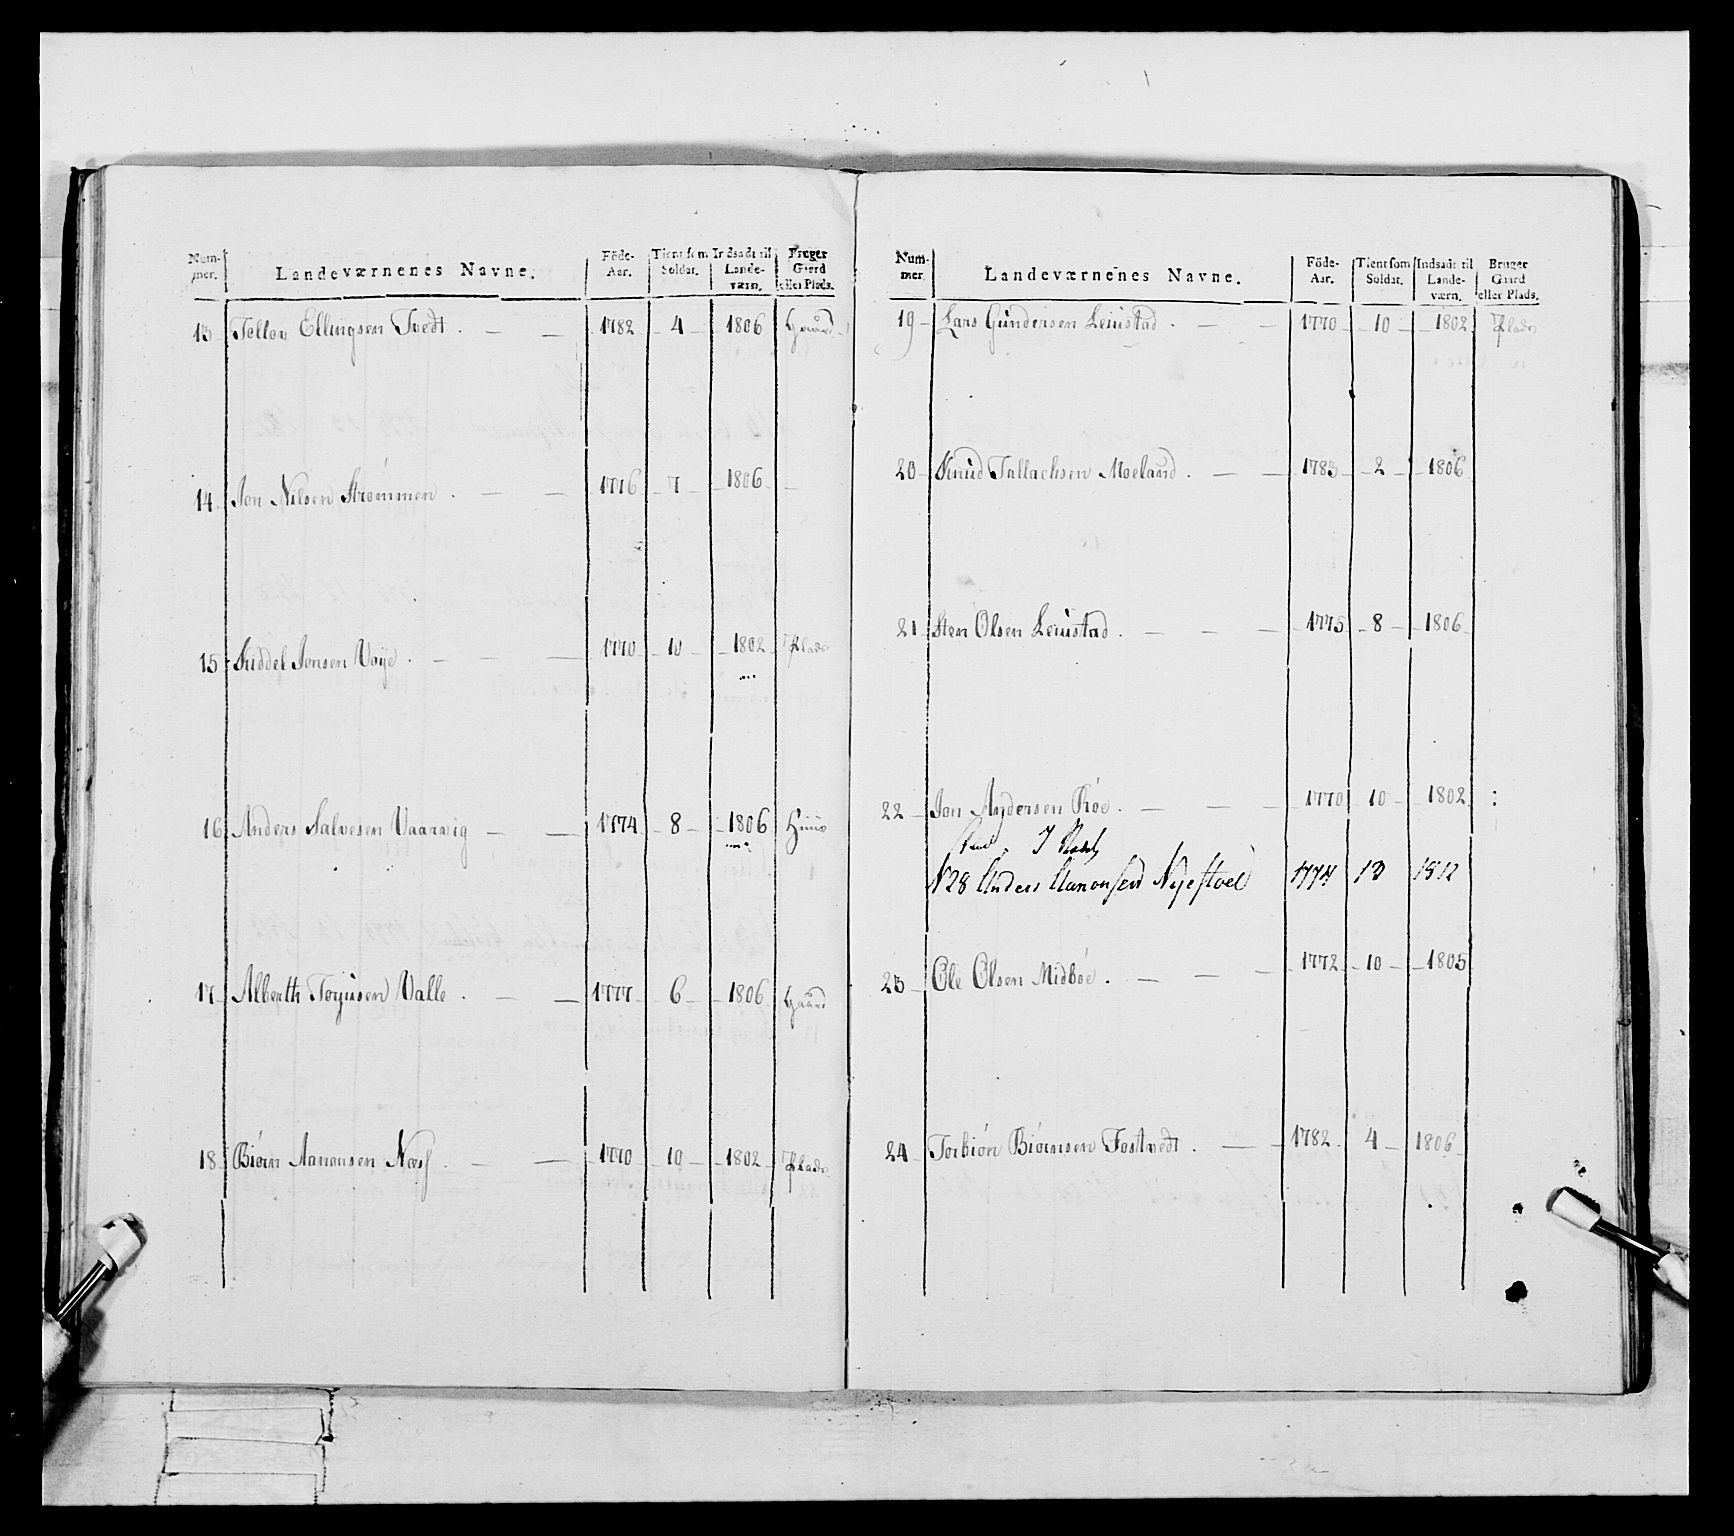 Num-mer. Landeværnenes Navne. Föde-Aar. Tient som Soldat. Indsadt til Lande-værn. Bruger Gaard eller Plads.
13 Tellov Ellingsen Tvedt . — — 1782 4 1806 Gaard
14 Jon Nilsen Strømmen . — — 1776 7 1806
15 Kiddel Jonsen Voye . — — — 1770 10 1802 Plads
16 Anders Salvesen Vaarvig — — 1774 8 1806 Huus
17 Alberth Torjusen Valle . — — 1777 6 1806 Gaard
18 Biørn Aanonsen Næss . — — 1770 10 1802 Plads
Num-mer. Landeværnenes Navne. Föde-Aar. Tient som Soldat. Indsadt til Lande-værn. Bruger Gaard eller Plads.
19 Lars Gundersen Leiustad . — — 1770 10 1802 Plads
20 Knud Tallachsen Moeland . — — 1783 2 1806
21 Sten Olsen Leiustad . — — — 1775 8 1806
22 Jon Andersen Røe . — — — 1770 10 1802
N28 Anders Aanonsen Nyestoel 1774 13 1812
23 Ole Olsen Midbøe . — — — 1772 10 1805
24 Torbiørn Biørnsen Fostvedt . — — 1782 4 1806